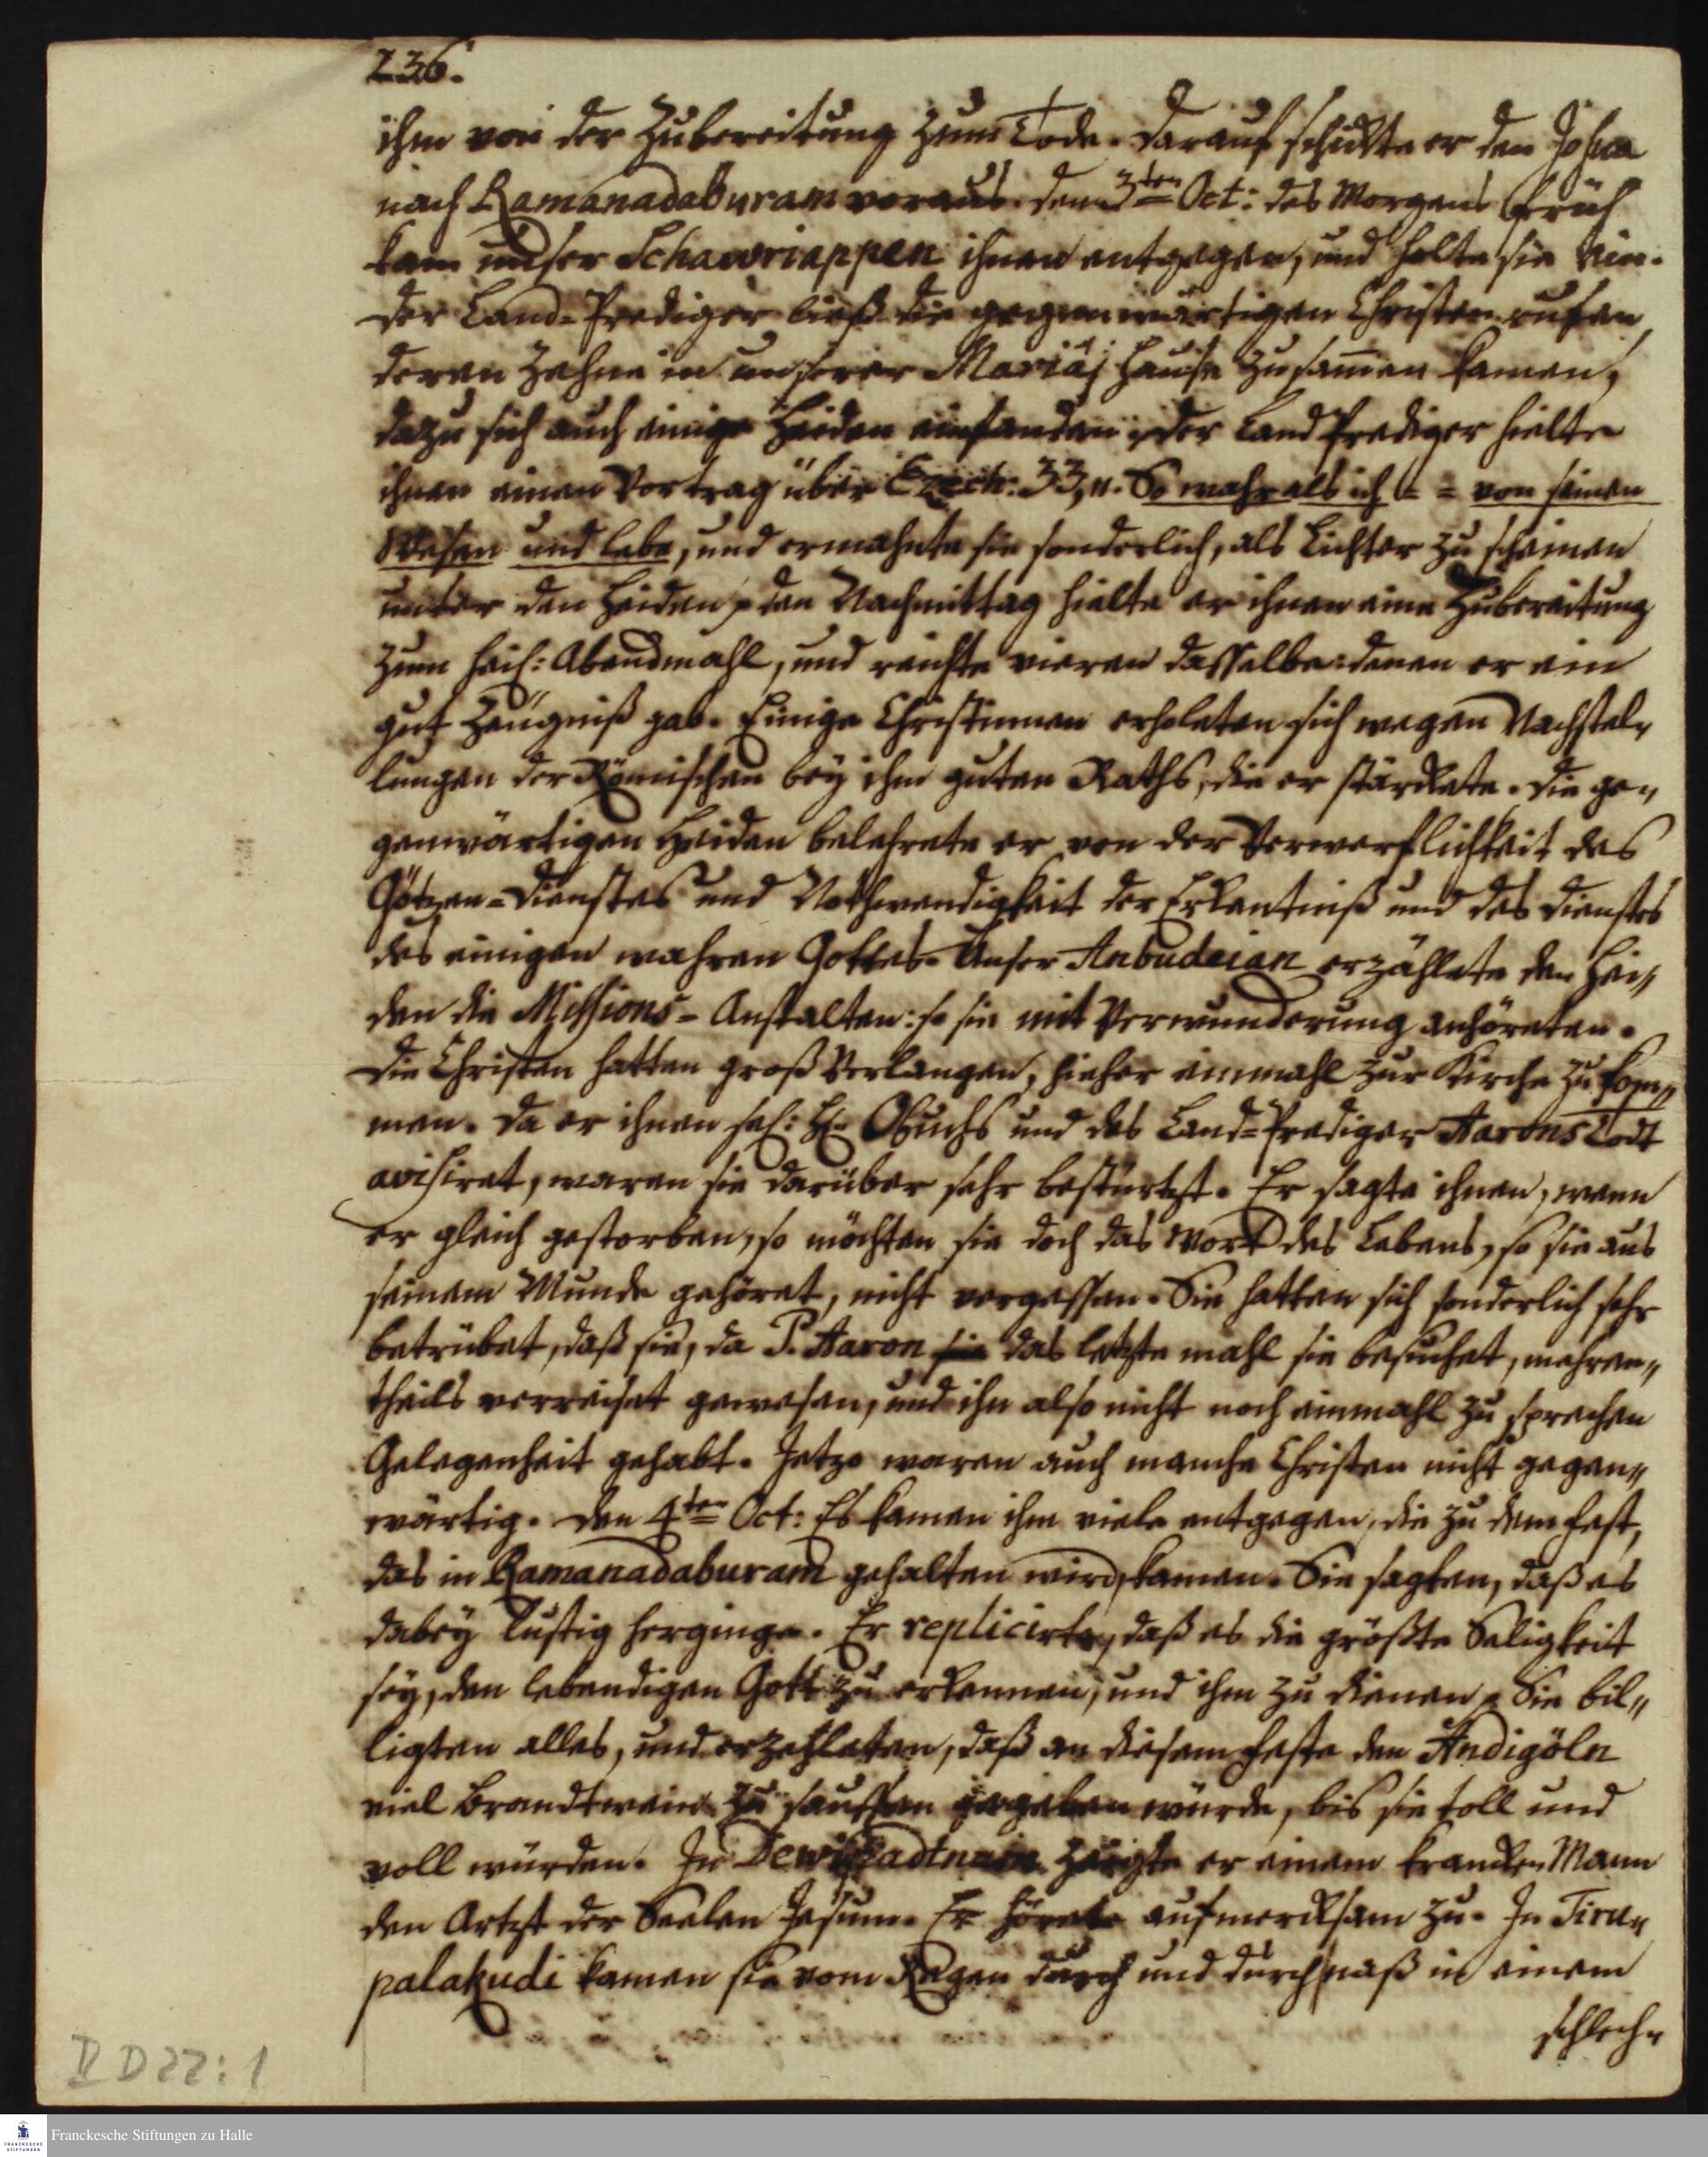 236.
ihm von der Zubereitung zum Tode. Darauf schickte er den Josua
nach Ramanadaburam voraus. den 3ten Oct: des Morgens früh
kam unser Schawriappen ihnen entgegen, und holte sie ein.
Der Land-Prediger ließ die gegenwärtigen Christen rufen
deren Zehne in unserer Mariäi Hause zusam̄en kamen,
dazu sich auch einige Heiden einfanden: Der Land Prediger hielte
ihnen einen Vortrag über Ezech: 33, 11. So wahr als ich = = von seinen
Wesen und lebe, und ermahnte sie sonderlich, als Lichter zu scheinen
unter den Heiden, den Nachmittag hielte er ihnen eine Zubereitung
zum heil: Abendmahl, und reichte vieren dasselbe: denen er ein
gut Zeugniß gab. Einige Christinnen erholeten sich wegen Nachstel„
lungen der Römischen bey ihm guten Raths, die er stärckete. Die ge„
genwärtigen Heiden belehrete er von der Verwerflichkeit des
Götzen-Dienstes und Nothwendigkeit der Erkentniß und des Dienstes
des einigen wahren Gottes. Unser Anbudeian erzählete den Hei„
den die Missions-Anstalten: so sie mit Verwunderung anhöreten.
Die Christen hatten groß Verlangen, hieher einmahl zur Kirche zu kom„
men. Da er ihnen sel: Hn Obuchs und des Land-Prediger Aarons Todt
avisiret, waren sie darüber sehr bestürtzt. Er sagte ihnen, wenn
er gleich gestorben, so möchten sie doch das Wort des Lebens, so sie aus
seinem Munde gehöret, nicht vergessen. Sie hatten sich sonderlich sehr
betrübet, daß sie, da P. Aaron sie das letzte mahl sie besuchet, mehren„
theils verreiset gewesen, und ihn also nicht noch einmahl zu sprechen
Gelegenheit gehabt. Jetzo waren auch manche Christen nicht gegen„
wärtig. Den 4ten Oct: Es kamen ihm viele entgegen, die zu dem Fest,
das in Ramanadaburam gehalten wird, kamen. Sie sagten, daß es
dabey lustig herginge. Er replicirte, daß es die größte Seligkeit
sey, den lebendigen Gott zu erkennen, und ihm zu dienen. Sie bil„
ligten alles, und erzehleten, daß an diesem Feste den Andigöln
viel Brandtwein zu sauffen gegeben würde, bis sie toll und
voll würden. In zeigte er einem krancken Mann
den Artzt der Seelen Jesum. Er hörete aufmercksam zu. In Tiru„
palakudi kamen sie vom Regen durch und durch naß in einem
schlech„
II D 22:1
Franckesche Stiftungen zu Halle